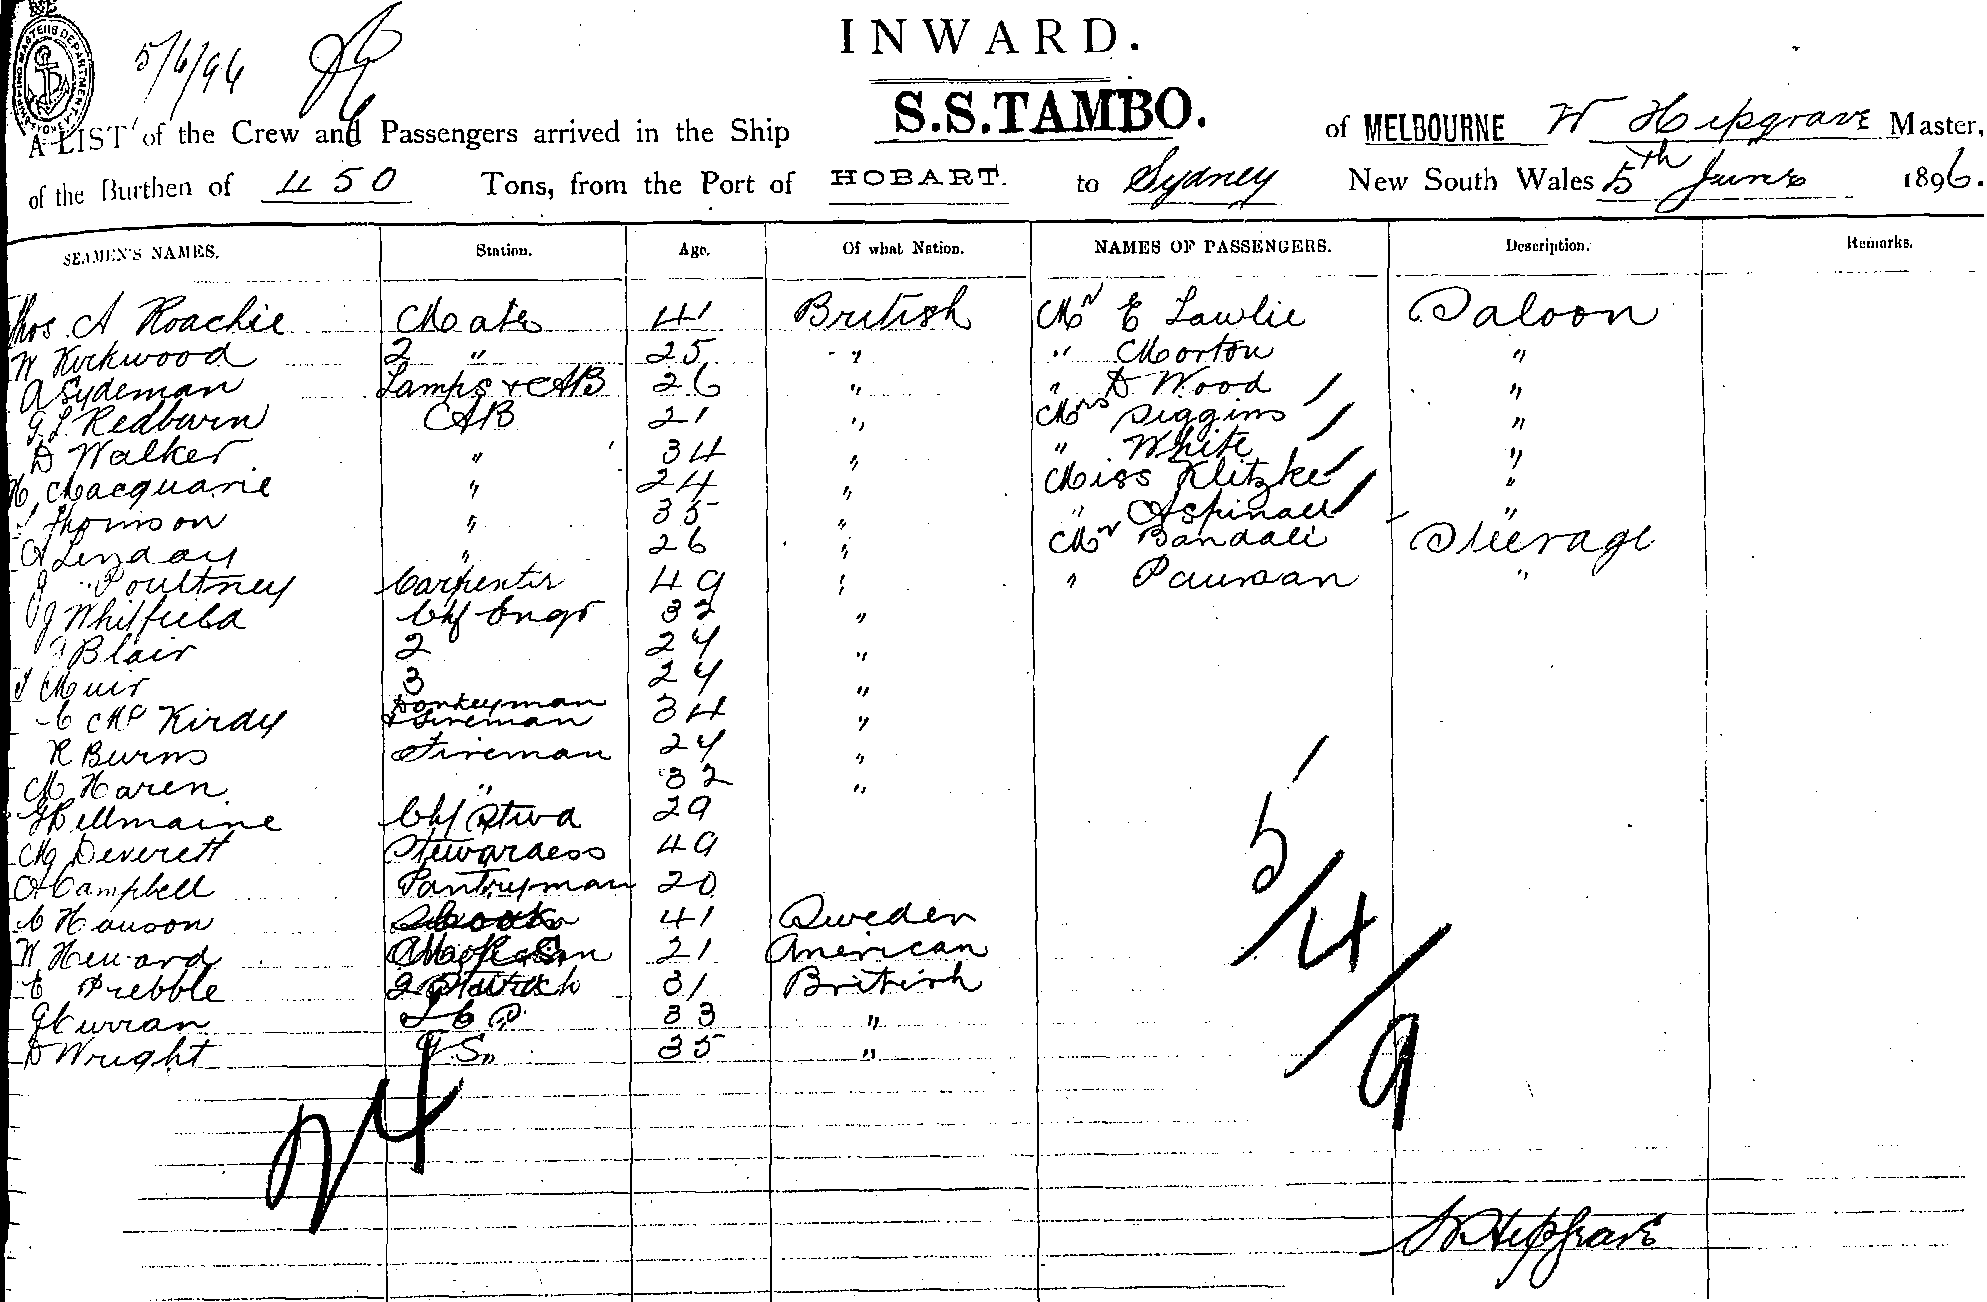 5/6/96
INWARD.
A LIST of the Crew and Passengers arrived in the Ship S.S.TAMBO. of MELBOURNE W Hepgrave Master,
of the Burthen of 450 Tons, from the Port of HOBART. to Sydney New South Wales 5th June 1896.
SEAMEN'S NAMES. Station. Age. Of what Nation. NAMES OF PASSENGERS. Description. Remarks.
Thos A Roachie Mate 41 British Mr E Lawlie Saloon
W Kirkwood 2 " 25 " " Morton "
A Sydeman Lamps & AB 26 " " D Wood "
G L Redburn AB 21 " Mrs Siggins "
D Walker " 34 " " White "
H Macquarie " 24 " Miss Klitzke "
Thomson " 35 " " Aspinall "
A Lindsay " 26 " Mr Bandali Steerage
J Poultney Carpenter 49 " " "
J Whitfield Chf Engr 32 "
Blair 2 24 "
Muir 3 24 "
C McKirdy Donkeyman & Fireman 34 "
R Burns Fireman 24 "
M Haren " 32 "
Chf Stwd 29
M Deverett Stewardess 49
A Campbell Pantryman 20
C Hanson 41 Sweden
W Heward 21 American
E Prebble 31 British
G Curran 33 "
D Wright 35 "
24
5/4/9
W Hepgrave